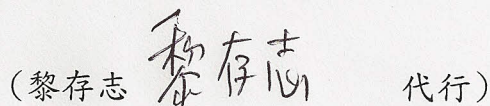 （黎存志 黎存志 代行）